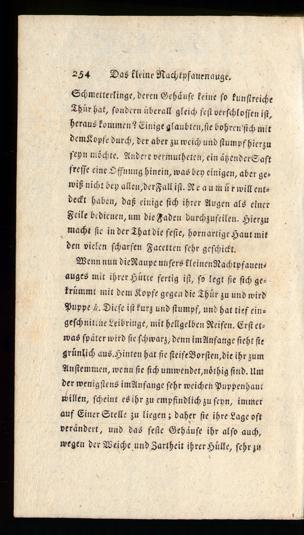 254 Das kleine Nachtpfauenauge.
Schmetterlinge, deren Gehäuse keine so kunstreiche
Thür hat, sondern überall gleich fest verschlossen ist,
heraus kommen? Einige glaubten, sie bohren sich mit
dem Kopfe durch, der aber zu weich und stumpf hierzu
seyn möchte. Andere vermutheten, ein äzender Saft
fresse eine Oeffnung hinein, was bey einigen, aber ge-
wiß nicht bey allen, der Fall ist. Reaumür will ent-
deckt haben, daß einige sich ihrer Augen als einer
Feile bedienen, um die Faden durchzufeilen. Hierzu
macht sie in der That die feste, hornartige Haut mit
den vielen scharfen Facetten sehr geschickt.
Wenn nun die Raupe unsers kleinen Nachtpfauen-
auges mit ihrer Hütte fertig ist, so legt sie sich ge-
krümmt mit dem Kopfe gegen die Thür zu und wird
Puppe. Diese ist kurz und stumpf, und hat tief ein-
geschnittne Leibringe, mit hellgelben Reifen. Erst et-
was später wird sie schwarz, denn im Anfange sieht sie
grünlich aus. Hinten hat sie steife Borsten, die ihr zum
Anstemmen, wenn sie sich umwendet, nöthig sind. Um
der wenigstens im Anfange sehr weichen Puppenhaut
willen, scheint es ihr zu empfindlich zu seyn, immer
auf Einer Stelle zu liegen; daher sie ihre Lage oft
verändert, und das feste Gehäuse ihr also auch,
wegen der Weiche und Zartheit ihrer Hülle, sehr zu